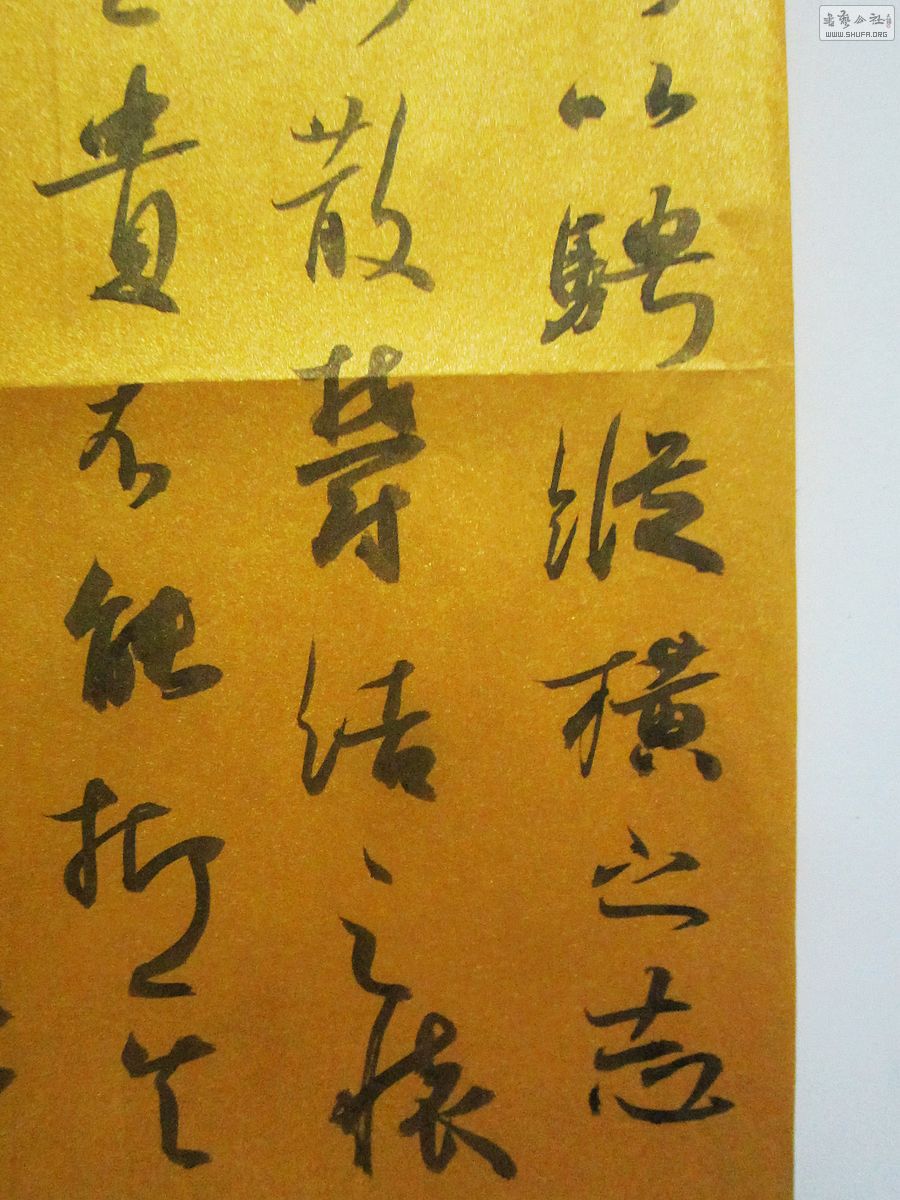 以騁縱橫之志
散鬱結之懷
貴不能抑其
書藝公社
WWW.SHUFA.ORG